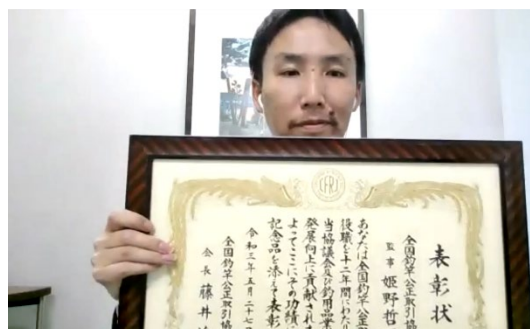 CFRJ
表彰状
全国釣竿公正取引協
監事 姫野哲
あなたは全国釣竿公正
役職を十二年間にわた
当協議会及び釣用品業
発展向上に貢献されま
よってここにその功績
記念品を添えて表彰
令和三年五月二十七
全国釣竿公正取引協
会長 藤井